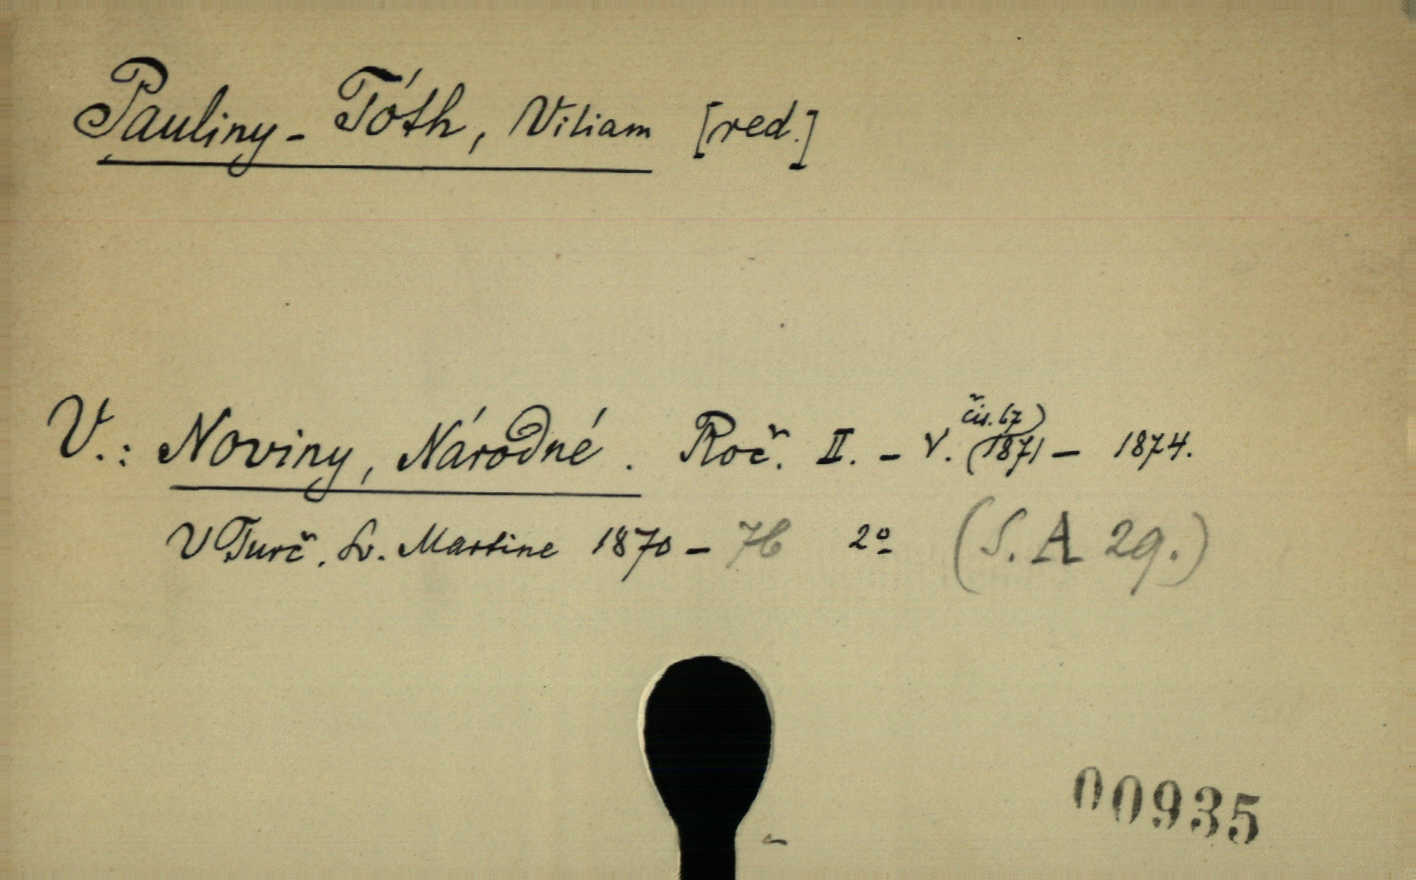 Pauliny-Tóth, Viliam [red.]
V.: Noviny, Národné. Roč. II. - V. (čís. 67) 1871 - 1874.
V Turč. Sv. Martine 1870 - 76 2º (S. A 29.)
00935